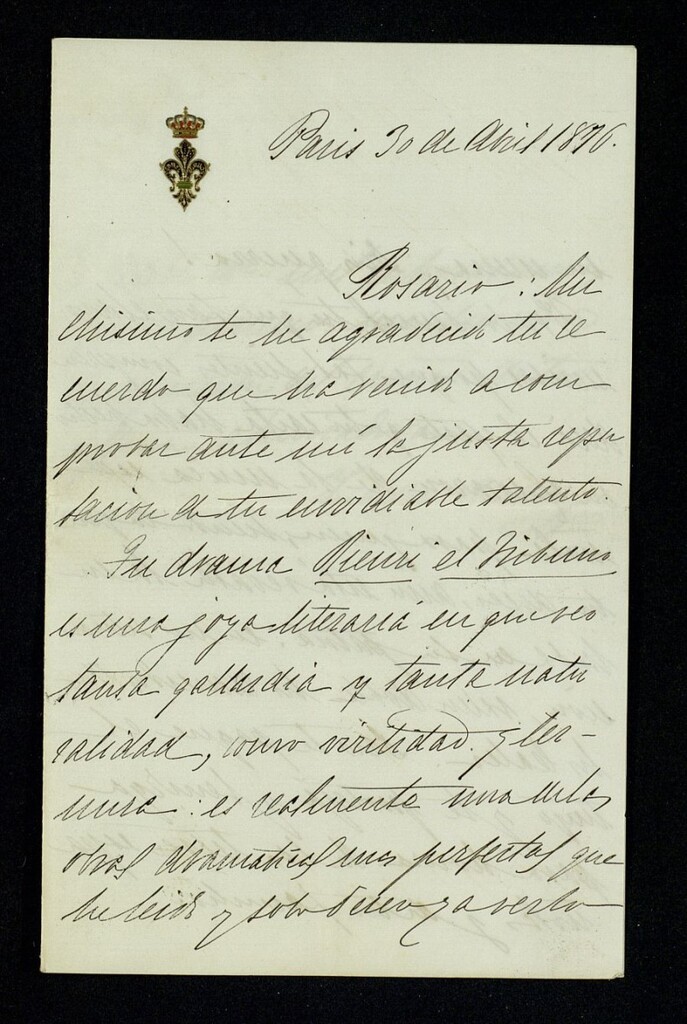 Paris 30 de Abril 1876.
Rosario: Mu
chisimo te he agradecido tu re
cuerdo que ha venido a com
probar ante mi la justa repu
tacion de tu envidiable talento.
Tu drama Rienzi el Tribuno
es una joya literaria en que veo
tanta gallardia y tanta natu
ralidad, como virilidad y ter-
nura: es realmente una de las
obras dramaticas mas perfectas que
he leido y solo deseo ya verlo